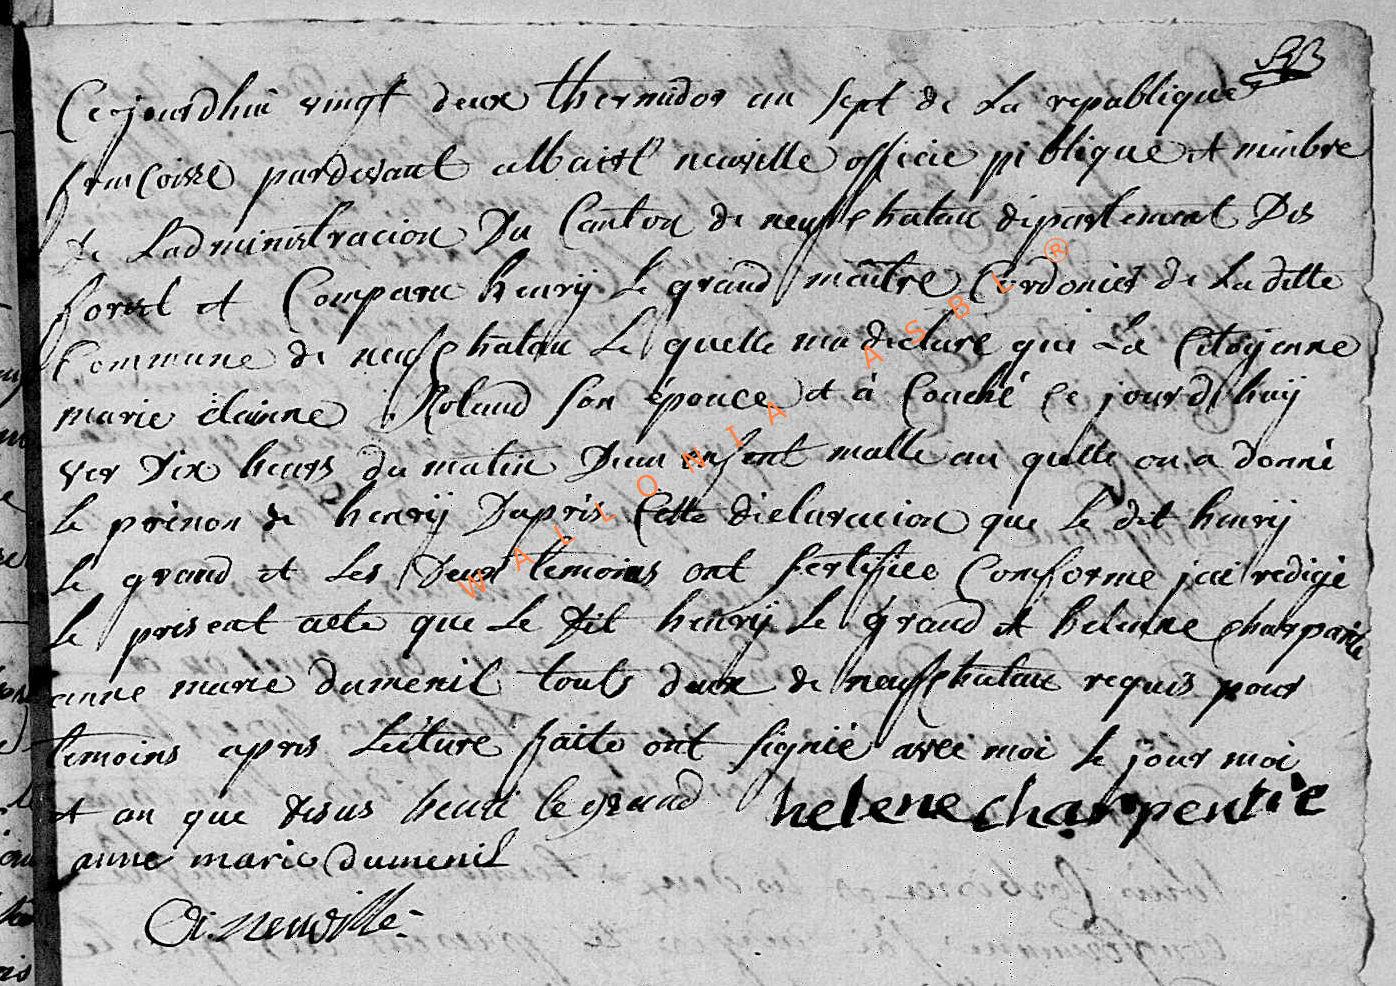 Ce jourdhui vingt deux thermidor an sept de La republique
francoisse pardevant albaert neuville officie piblique et minbre
de Ladministracion Du Canton de neufchatau departement Des
forest et Comparu henrÿ Le grand maitre Cordonier de La ditte
Commune de neufchatau Le quelle ma declaré que La Citoyenne
marie elainne Roland son épouce et à Couché Ce jourdhuy
ver dix heurs du matin Deun enfent malle au quelle on a donné
le prénon de henrÿ Dapris Cette dieluracion que le dit henrÿ
Le grand et Les Deux temoins ont sertifiee Conforme jai redigé
le present acte que Le dit henrÿ Le grand et helenne charpantie
anne marie dumenil touts deux de neufchatau requis pour
temoins apris Lecture faite ont signié avec moi le jour moi
et an que desus henri le grand helene charpentie
anne marie dumenil
A. Neuville
WALLONIA ASBL ®